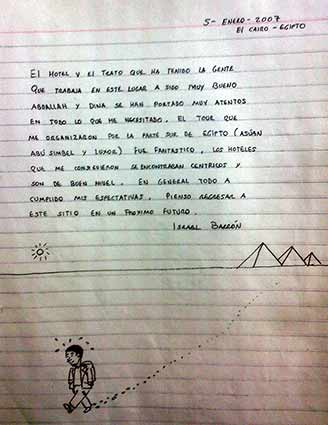 5- ENERO - 2007
EL CAIRO - EGIPTO
EL HOTEL Y EL TRATO QUE HA TENIDO LA GENTE
QUE TRABAJA EN ESTE LUGAR A SIDO MUY BUENO
ABDALLAH Y DINA SE HAN PORTADO MUY ATENTOS
EN TODO LO QUE ME NECESITADO. EL TOUR QUE
ME ORGANIZARON POR LA PARTE SUR DE EGIPTO (ASUÁN
ABÚ SIMBEL Y LUXOR) FUE FANTASTICO. LOS HOTELES
QUE ME CONSIGUIERON SE ENCONTRABAN CENTRICOS Y
SON DE BUEN NIVEL. EN GENERAL TODO A
CUMPLIDO MIS ESPECTATIVAS. PIENSO REGRESAR A
ESTE SITIO EN UN PROXIMO FUTURO.
ISRAEL BARRÓN